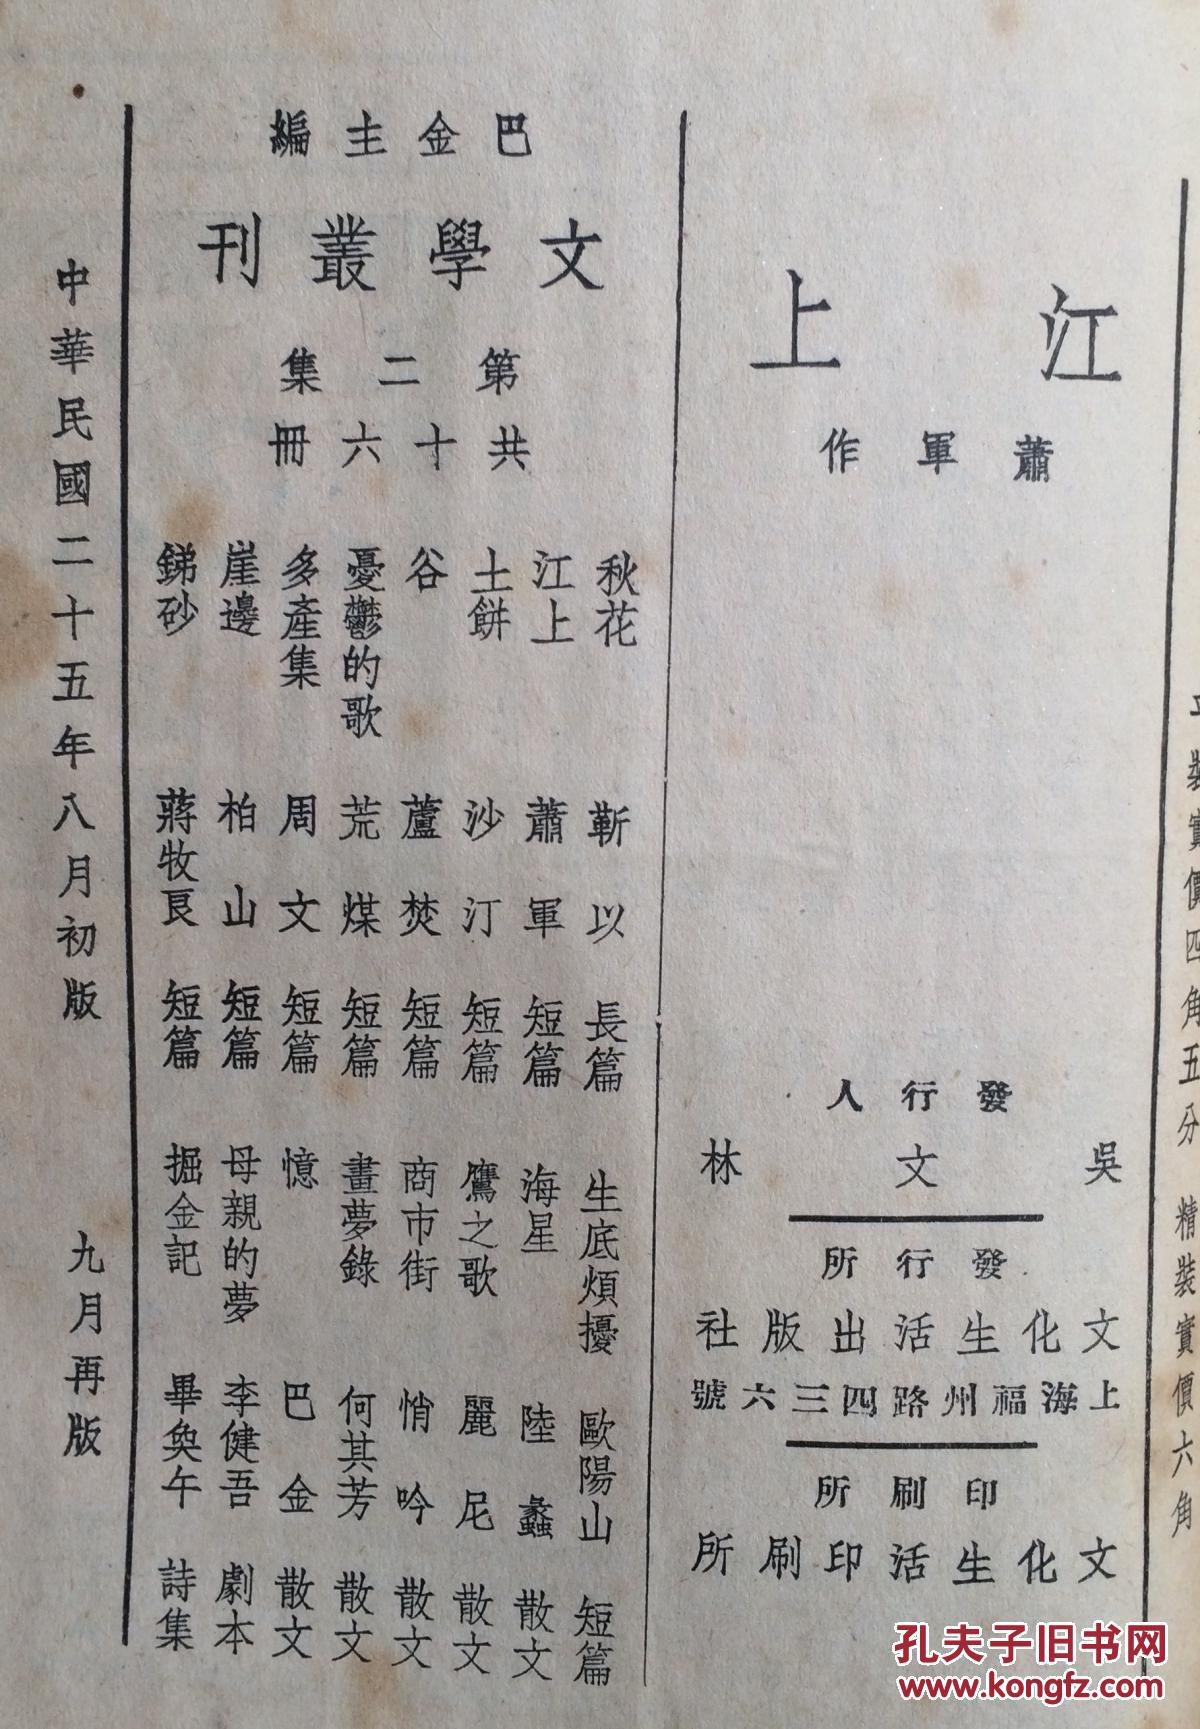 平裝實價四角五分 精裝實價六角
江上
蕭軍作
發行人
吳文林
發行所
文化生活出版社
上海福州路四三六號
印刷所
文化生活印刷所
巴金主編
文學叢刊
第二集
共十六冊
秋花 靳以 長篇 生底煩擾 歐陽山 短篇
江上 蕭軍 短篇 海星 陸蠡 散文
土餅 沙汀 短篇 鷹之歌 麗尼 散文
谷 蘆焚 短篇 商市街 悄吟 散文
憂鬱的歌 荒煤 短篇 畫夢錄 何其芳 散文
多產集 周文 短篇 憶 巴金 散文
崖邊 柏山 短篇 母親的夢 李健吾 劇本
銻砂 蔣牧良 短篇 掘金記 畢奐午 詩集
中華民國二十五年八月初版 九月再版
孔夫子旧书网
www.kongfz.com